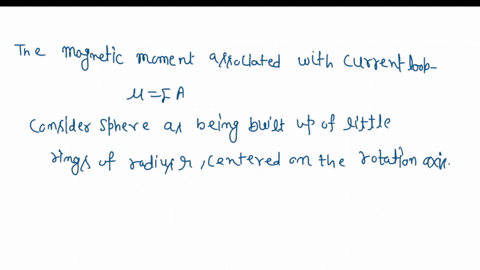 The magnetic moment associated with current loop-
μ = I A
Consider sphere as being built up of little
rings of radius r, centered on the rotation axis.